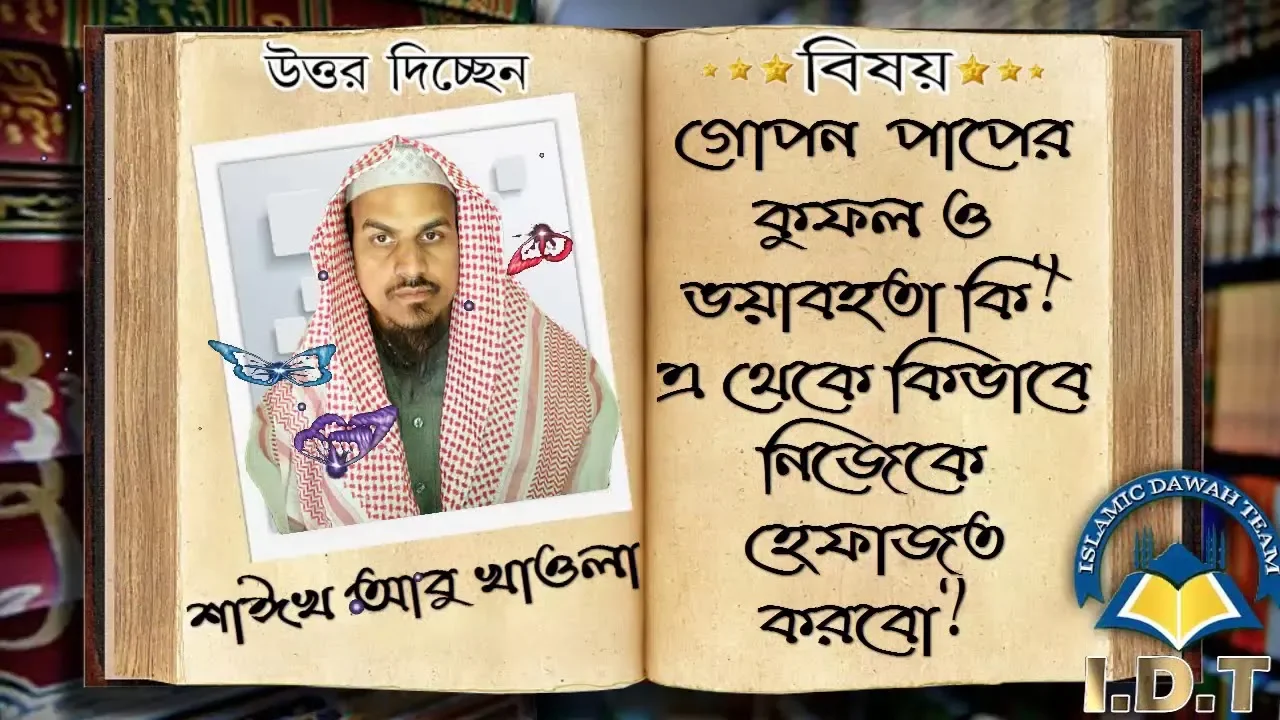 উত্তর দিচ্ছেন
শাঈখ আবু খাওলা
বিষয়
গোপন পাপের
কুফল ও
ভয়াবহতা কি?
এ থেকে কিভাবে
নিজেকে
হেফাজত
করবো?
ISLAMIC DAWAH TEAM
I.D.T